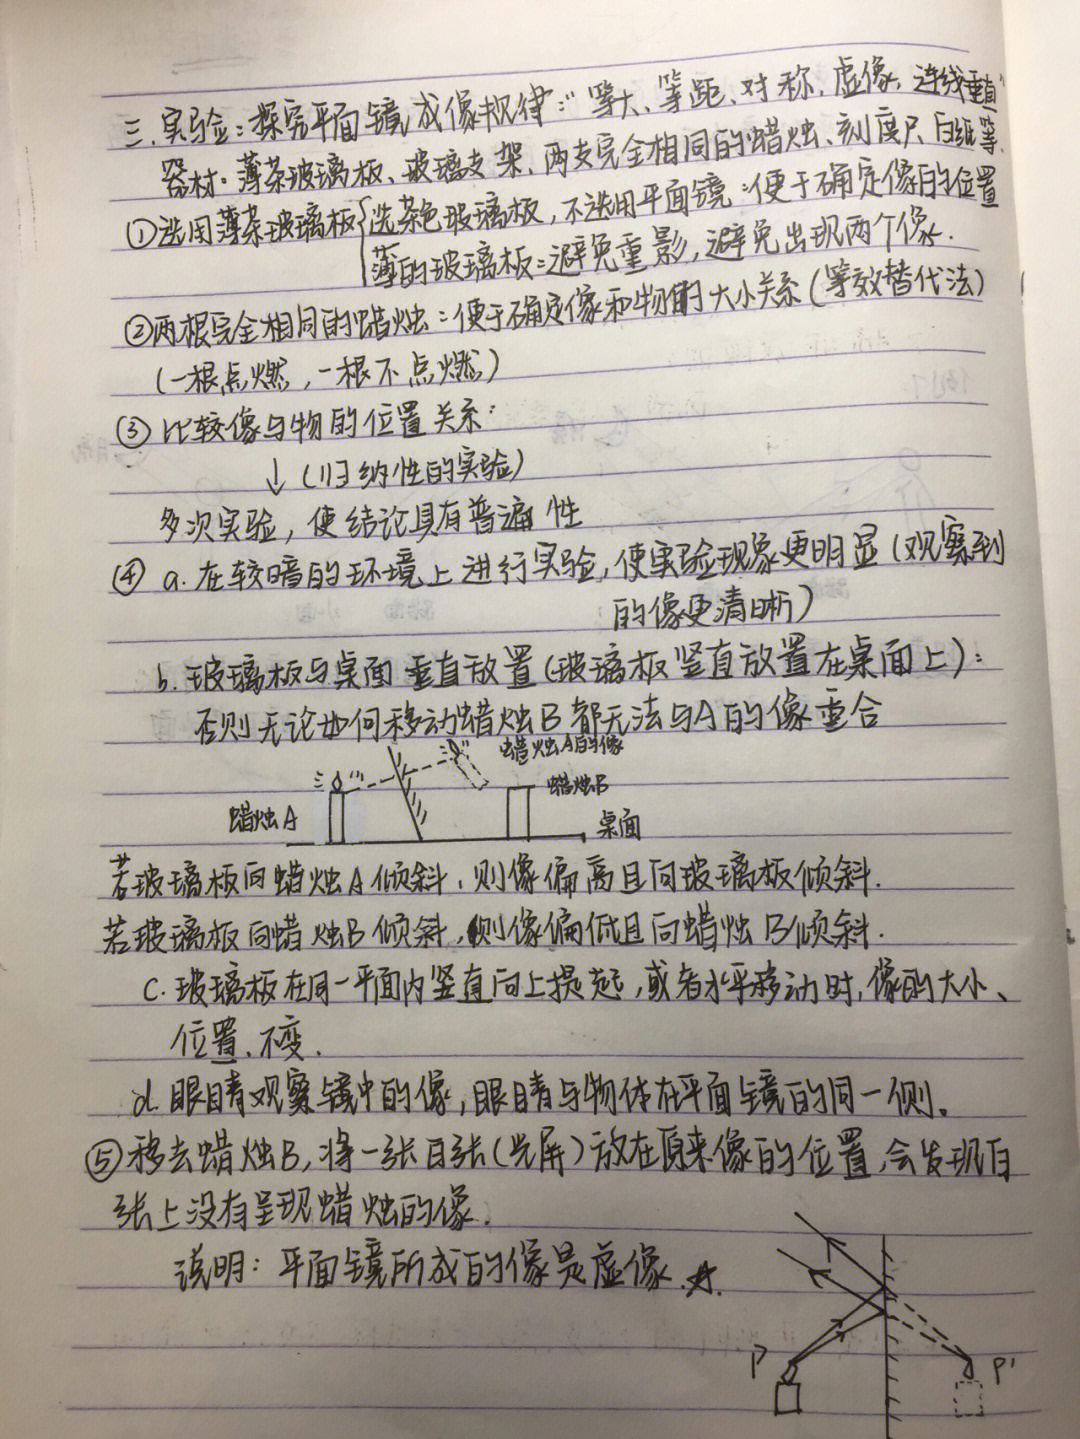 三.实验:探究平面镜成像规律:"等大、等距、对称、虚像,连线垂直"
器材.薄茶玻璃板、玻璃支架、两支完全相同的蜡烛、刻度尺 白纸等.
①选用薄茶玻璃板{选茶色玻璃板,不选用平面镜:便于确定像的位置
薄的玻璃板:避免重影,避免出现两个像.
②两根完全相同的蜡烛:便于确定像和物的大小关系(等效替代法)
(一根点燃,一根不点燃)
③比较像与物的位置关系:
↓(归纳性的实验)
多次实验,使结论具有普遍性
④ a.在较暗的环境上进行实验,使实验现象更明显(观察到
的像更清晰)
b.玻璃板与桌面垂直放置(玻璃板竖直放置在桌面上):
否则无论如何移动蜡烛B都无法与A的像重合
蜡烛A的像
蜡烛B
蜡烛A
桌面
若玻璃板向蜡烛A倾斜,则像偏高且向玻璃板倾斜.
若玻璃板向蜡烛B倾斜,则像偏低且向蜡烛B倾斜.
C.玻璃板在同一平面内竖直向上提起,或者水平移动时,像的大小、
位置、不变.
d.眼睛观察镜中的像,眼睛与物体在平面镜的同一侧。
⑤移去蜡烛B,将一张白张(光屏)放在原来像的位置,会发现白
张上没有呈现蜡烛的像.
说明:平面镜所成的像是虚像.☆.
P
P'